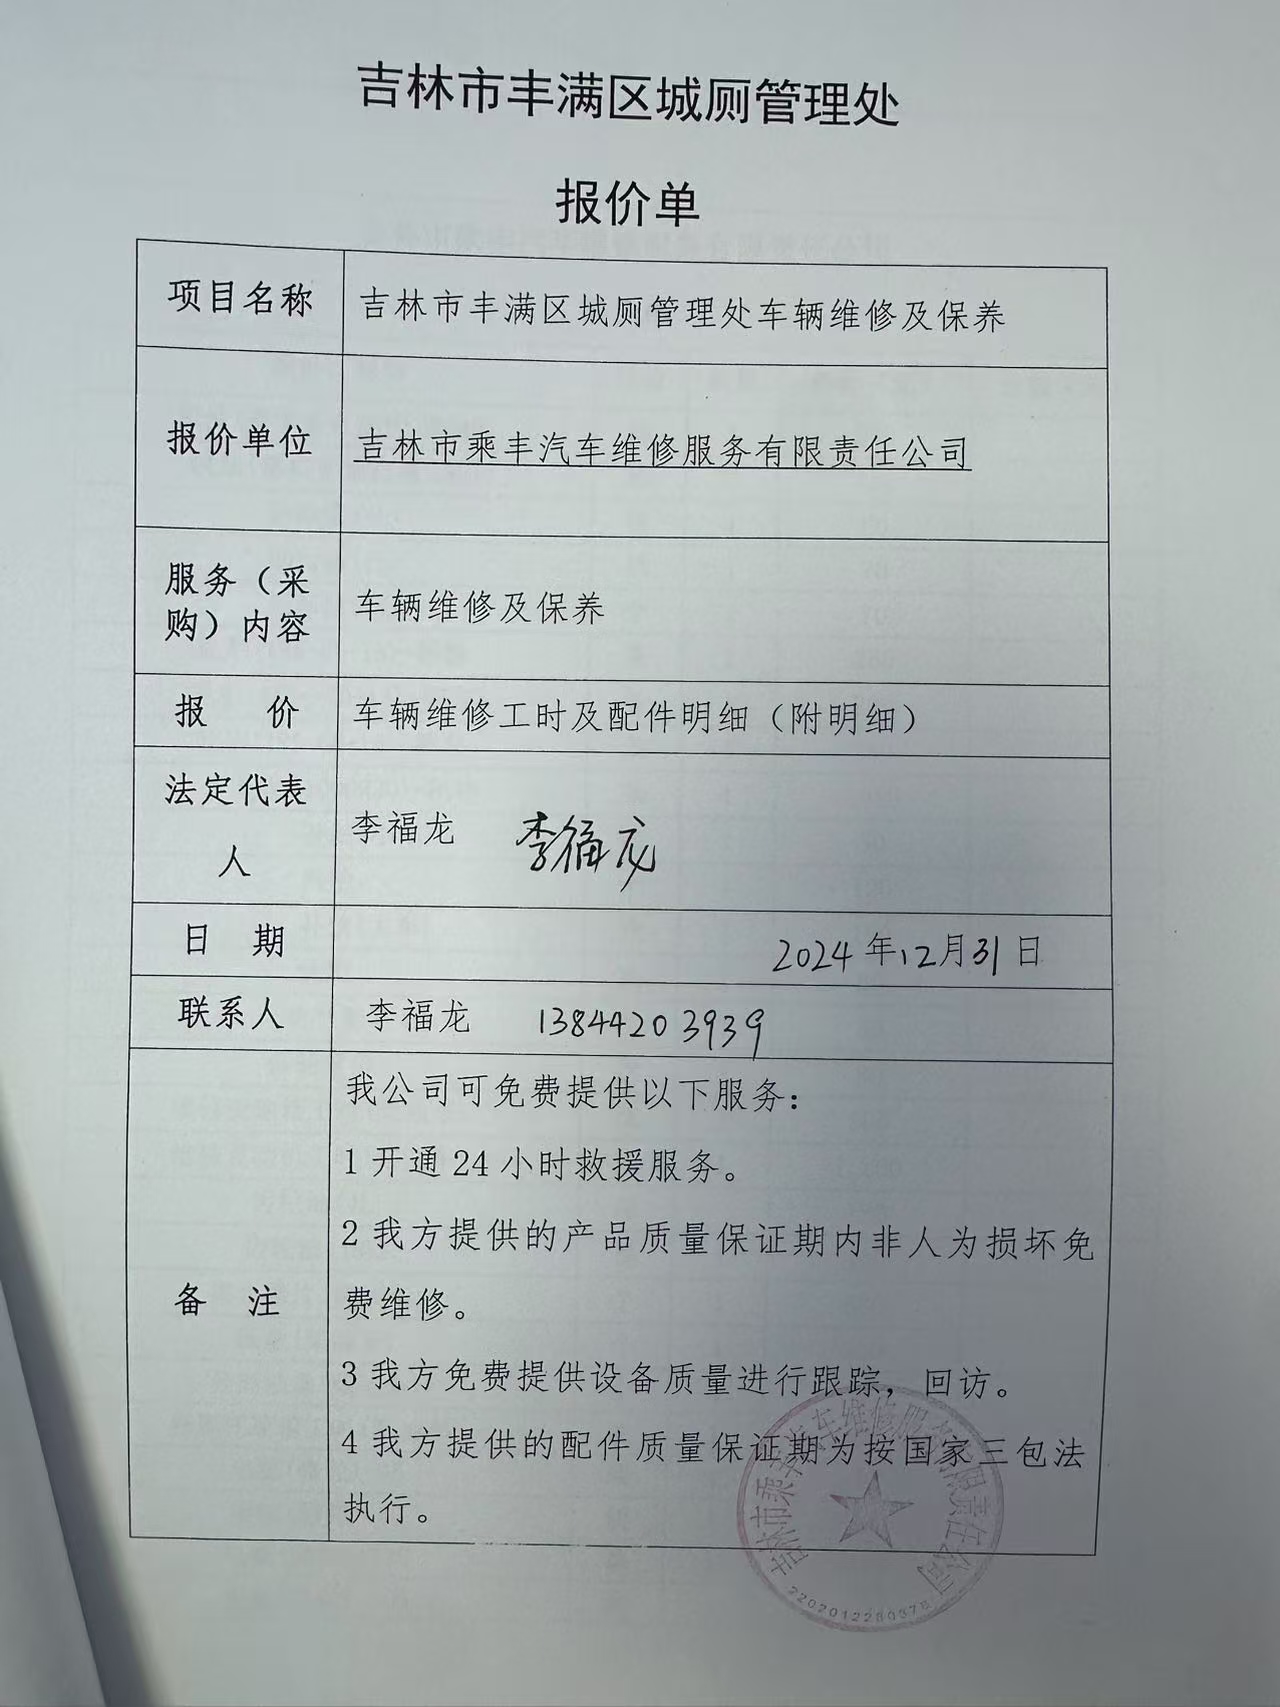 吉林市丰满区城厕管理处
报价单
项目名称 吉林市丰满区城厕管理处车辆维修及保养
报价单位 吉林市乘丰汽车维修服务有限责任公司
服务（采
购）内容 车辆维修及保养
报 价 车辆维修工时及配件明细（附明细）
法定代表
人 李福龙 李福龙
日 期 2024年12月31日
联系人 李福龙 13844203939
备 注
我公司可免费提供以下服务：
1开通24小时救援服务。
2我方提供的产品质量保证期内非人为损坏免
费维修。
3我方免费提供设备质量进行跟踪，回访。
4我方提供的配件质量保证期为按国家三包法
执行。
吉林市乘丰汽车维修服务有限责任公司
2202012280378